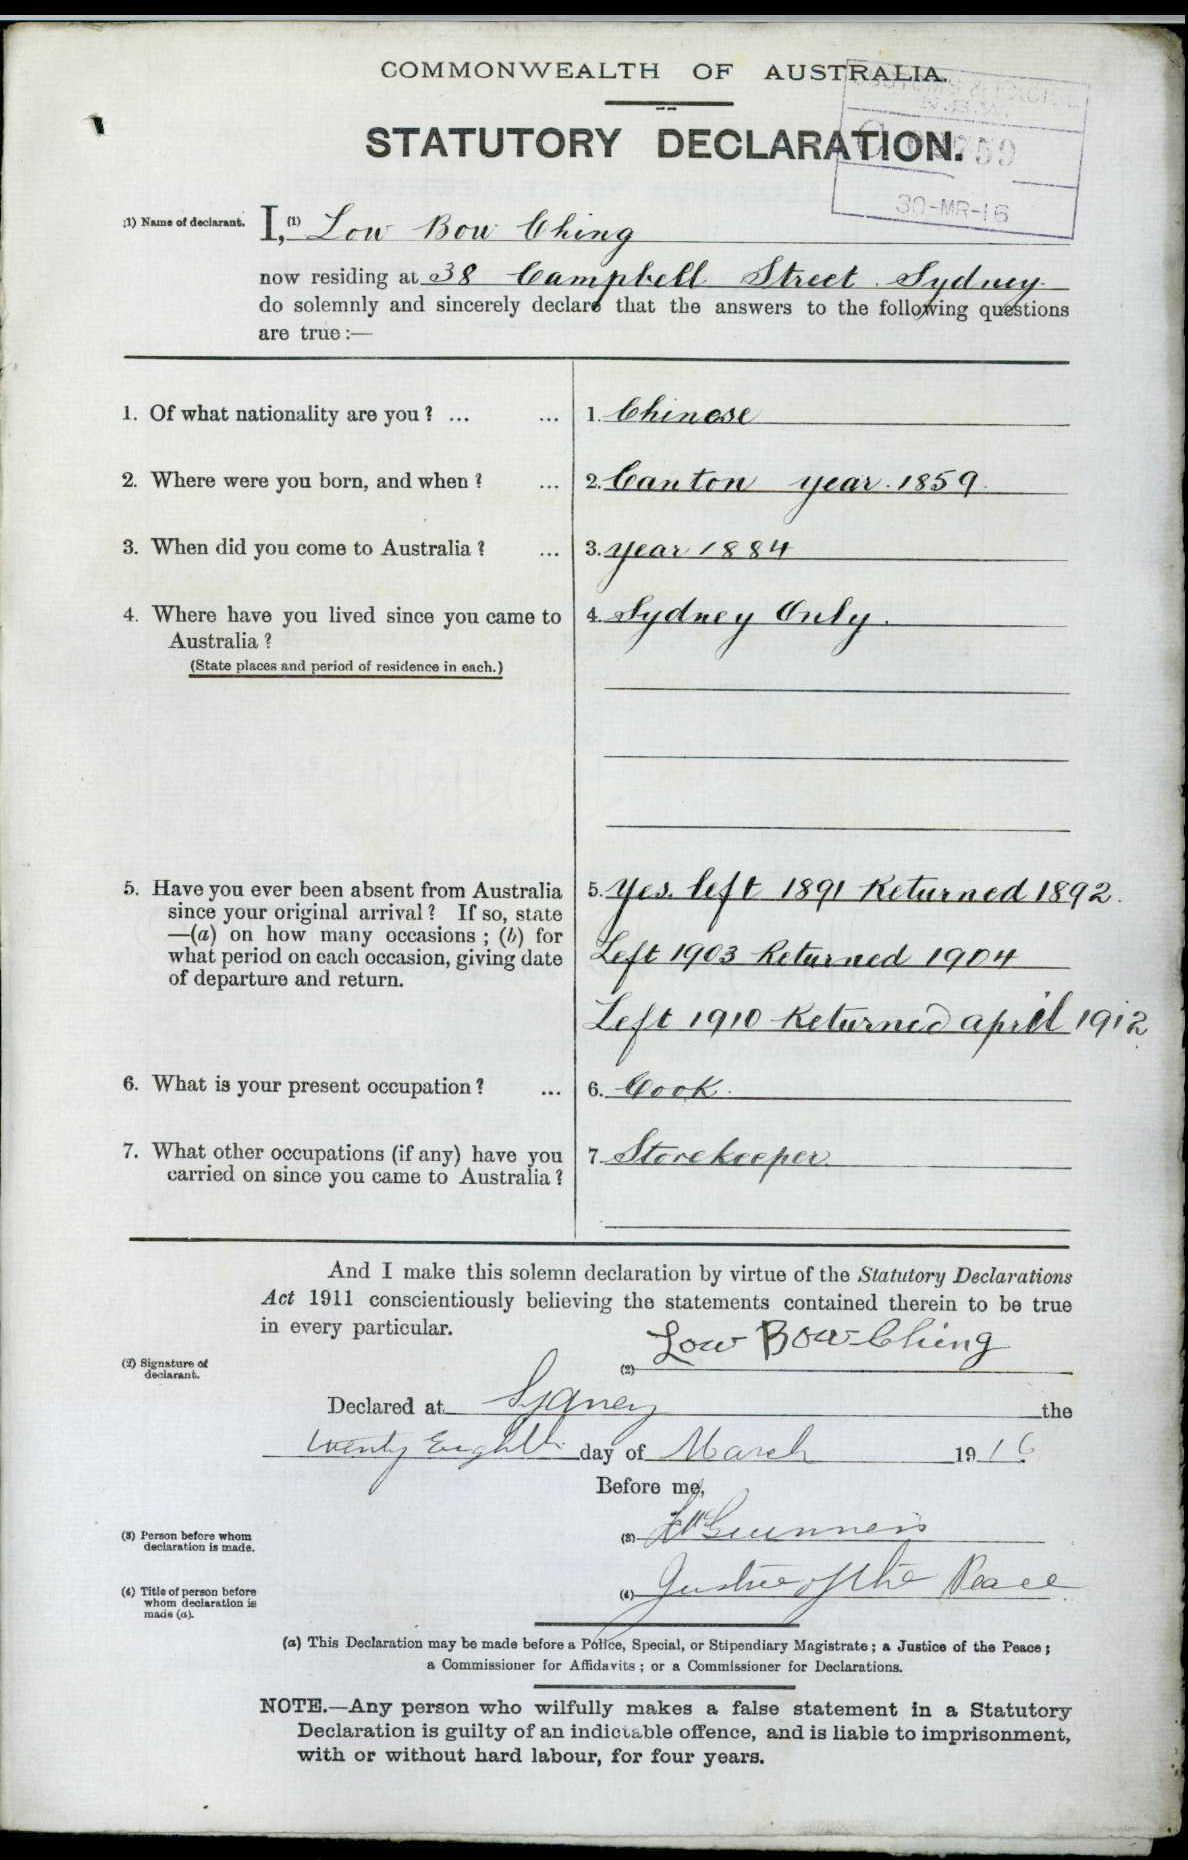 COMMONWEALTH OF AUSTRALIA.
STATUTORY DECLARATION.
CUSTOMS & EXCISE
N.S.W.
30-MR-16
(1) Name of declarant. I, (1) Low Bow Ching
now residing at 38 Campbell Street. Sydney.
do solemnly and sincerely declare that the answers to the following questions
are true:—
1. Of what nationality are you? ... ... 1. Chinese
2. Where were you born, and when? ... 2. Canton year. 1859.
3. When did you come to Australia? ... 3. year 1884
4. Where have you lived since you came to 4. Sydney Only.
Australia?
(State places and period of residence in each.)
5. Have you ever been absent from Australia 5. Yes. left 1891 Returned 1892.
since your original arrival? If so, state
—(a) on how many occasions; (b) for Left 1903 Returned 1904
what period on each occasion, giving date
of departure and return.
Left 1910 Returned april 1912
6. What is your present occupation? ... 6. Cook.
7. What other occupations (if any) have you 7. Storekeeper.
carried on since you came to Australia?
And I make this solemn declaration by virtue of the Statutory Declarations
Act 1911 conscientiously believing the statements contained therein to be true
in every particular.
(2) Signature of
declarant.
(2) Low Bow Ching
Declared at Sydney the
twenty Eighth day of March 1916
Before me,
(3) Person before whom
declaration is made.
(3)
(4) Title of person before
whom declaration is
made (a).
(4) Justice of the Peace
(a) This Declaration may be made before a Police, Special, or Stipendiary Magistrate; a Justice of the Peace;
a Commissioner for Affidavits; or a Commissioner for Declarations.
NOTE.—Any person who wilfully makes a false statement in a Statutory
Declaration is guilty of an indictable offence, and is liable to imprisonment,
with or without hard labour, for four years.